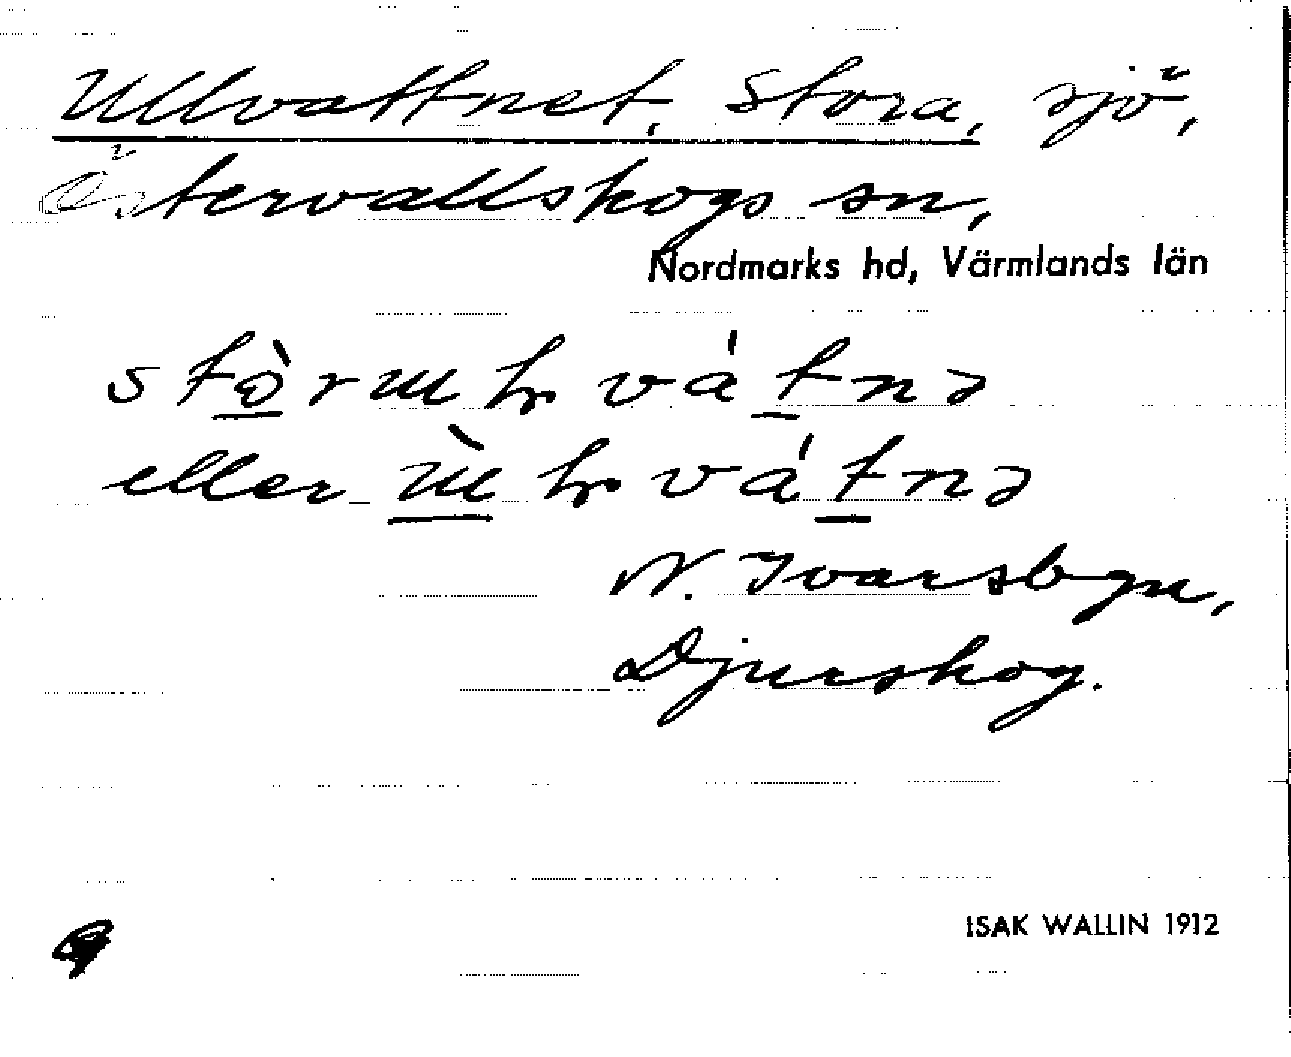 Ullvattnet, Stora, sjö,
Östervallskogs sn,
Nordmarks hd, Värmlands län
eller
N. Ivarsbyn,
Djurskog.
ISAK WALLIN 1912